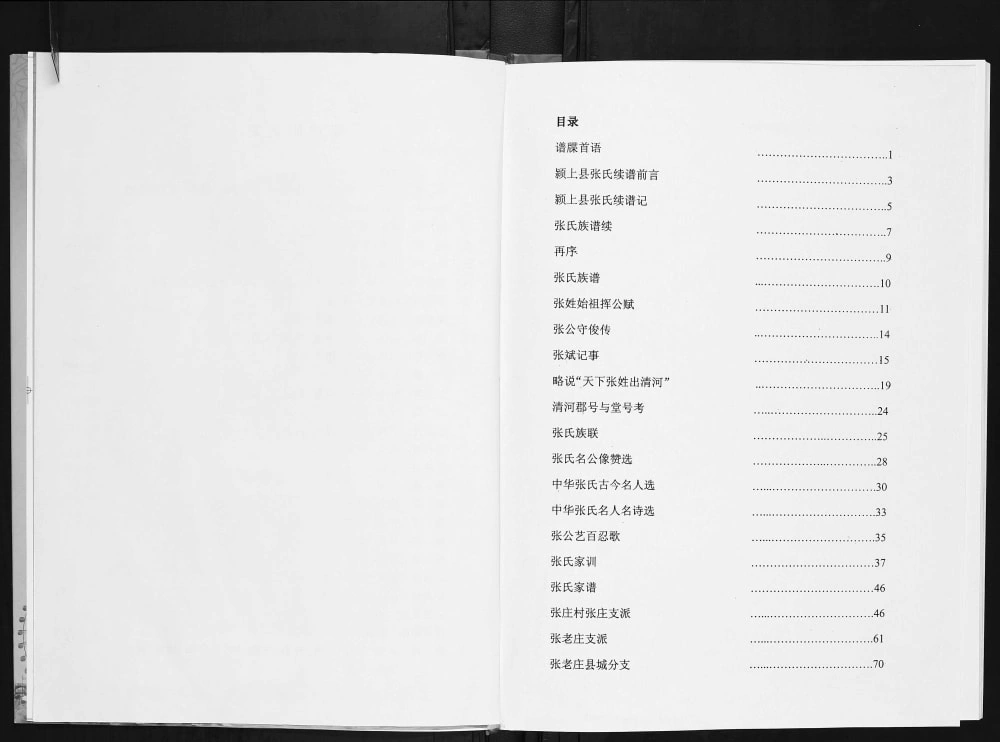 目录
谱牒首语 ……………………………..1
颍上县张氏续谱前言 ……………………………..3
颍上县张氏续谱记 ……………………………..5
张氏族谱续 ……………………………..7
再序 ……………………………..9
张氏族谱 ……………………………10
张姓始祖挥公赋 ……………………………11
张公守俊传 ……………………………14
张斌记事 ……………………………15
略说“天下张姓出清河” ……………………………19
清河郡号与堂号考 ……………………………24
张氏族联 ……………………………25
张氏名公像赞选 ……………………………28
中华张氏古今名人选 ……………………………30
中华张氏名人名诗选 ……………………………33
张公艺百忍歌 ……………………………35
张氏家训 ……………………………37
张氏家谱 ……………………………46
张庄村张庄支派 ……………………………46
张老庄支派 ……………………………61
张老庄县城分支 ……………………………70